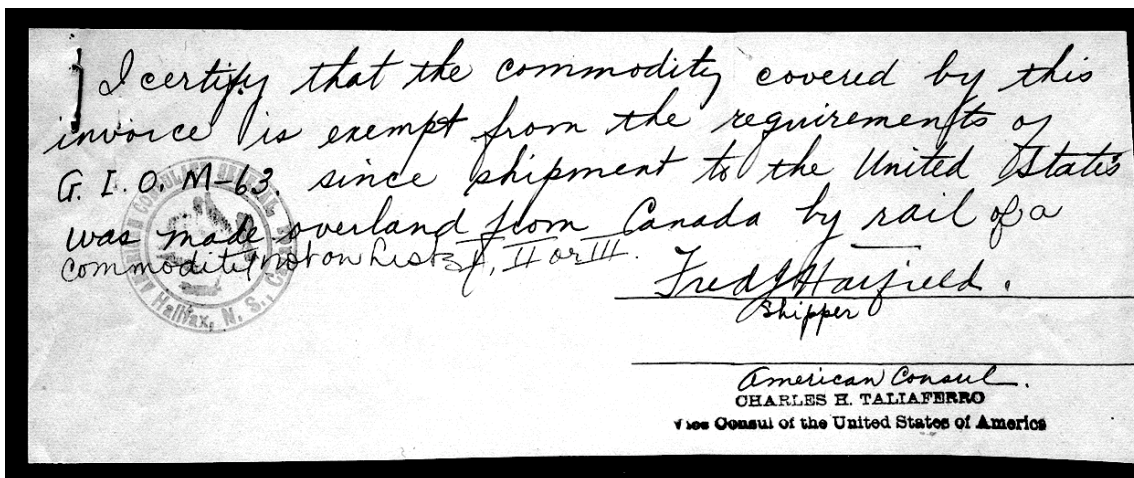 I certify that the commodity covered by this
invoice is exempt from the requirements of
G.I.O. M-63. since shipment to the United States
was made overland from Canada by rail of a
commodity not on Lists I, II or III.
Fred J Hatfield.
Shipper
American Consul.
CHARLES H. TALIAFERRO
Vice Consul of the United States of America
Halifax, N. S.,